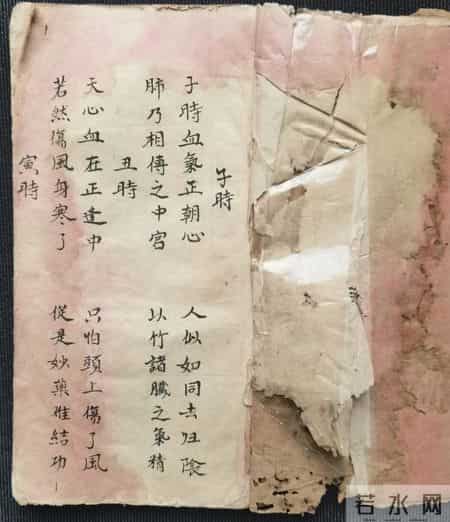 子時
子時血氣正朝心 人似如同去归陰
肺乃相傳之中宮 以竹諸臟之氣精
丑時
天心血在正逢中 只怕頭上傷了風
若然傷風身寒了 從是妙藥难結功
寅時
若水网